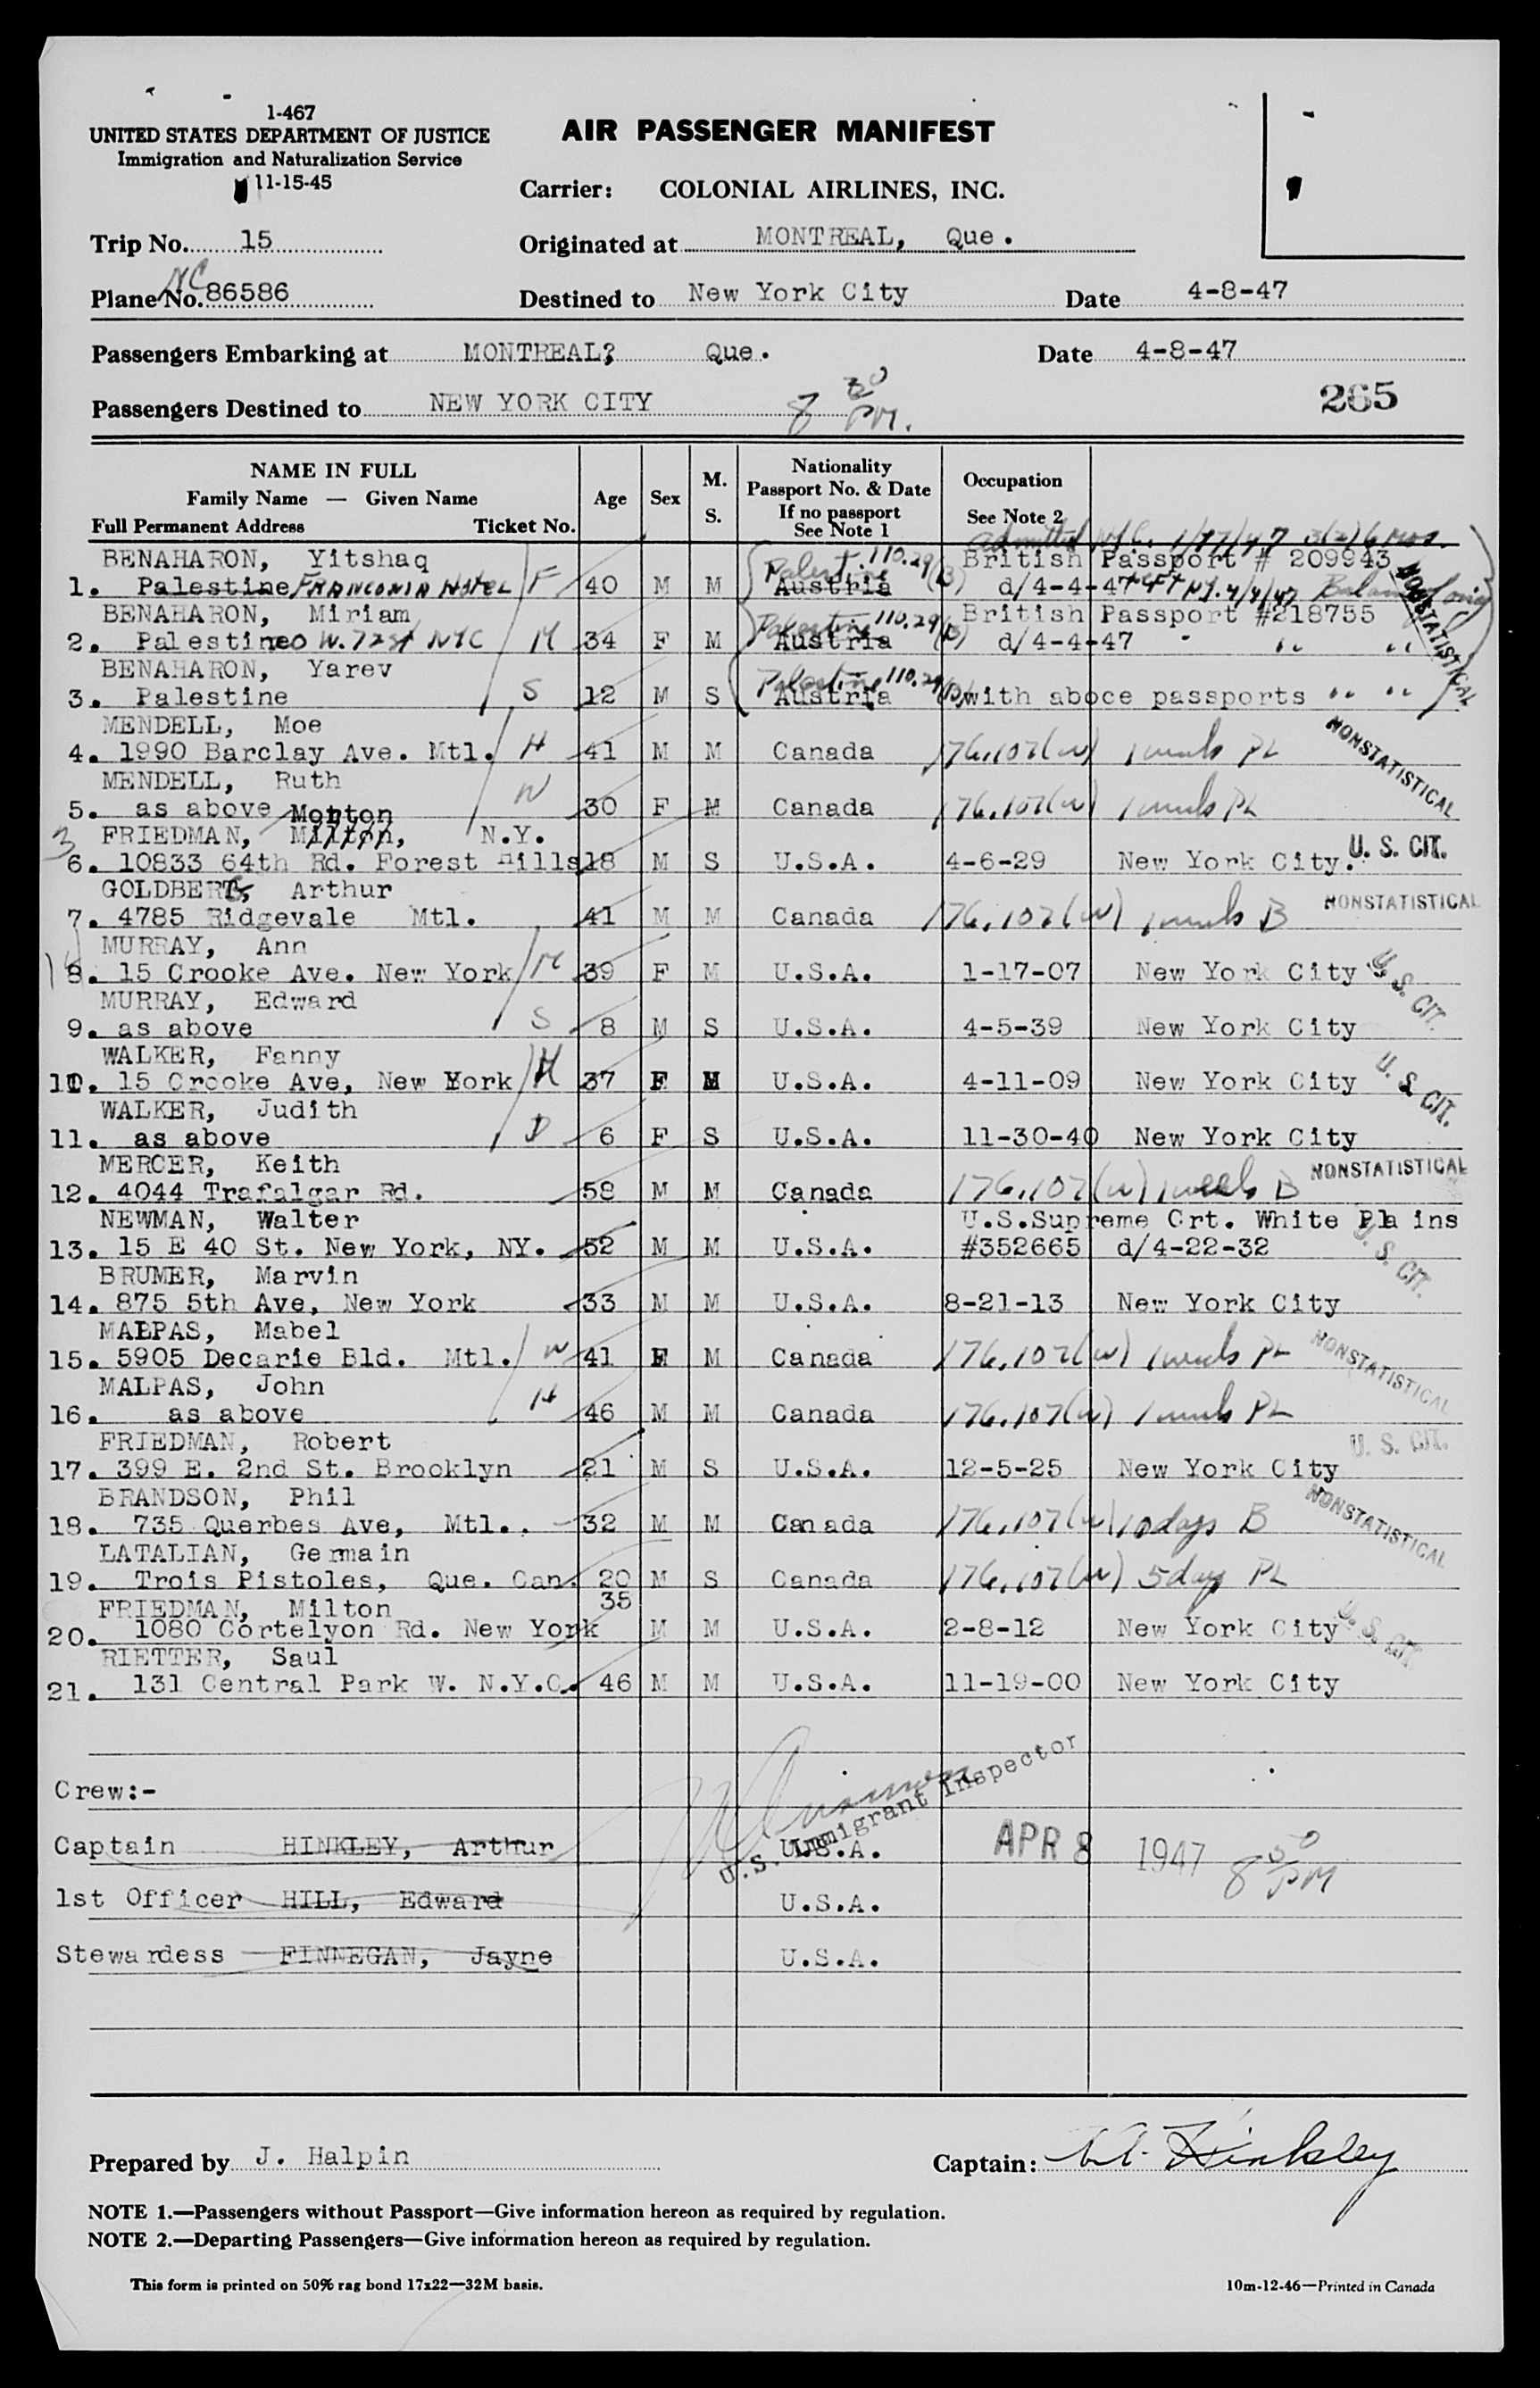 1-467
UNITED STATES DEPARTMENT OF JUSTICE
Immigration and Naturalization Service
11-15-45
AIR PASSENGER MANIFEST
Carrier: COLONIAL AIRLINES, INC.
Trip No. 15
Originated at MONTREAL, Que.
NC
Plane No. 86586
Destined to New York City
Date 4-8-47
Passengers Embarking at MONTREAL? Que.
Date 4-8-47
Passengers Destined to NEW YORK CITY
8 30 PM.
265
NAME IN FULL
Family Name — Given Name
Full Permanent Address Ticket No.
Age
Sex
M. S.
Nationality
Passport No. & Date
If no passport
See Note 1
Occupation
See Note 2
Admitted
BENAHARON, Yitshaq British Passport # 209943
1. Palestine FRANCONIA HOTEL F 40 M M Palestine Austria 110.29(B) d/4-4-47
BENAHARON, Miriam British Passport #218755
2. Palestine W. 72 St NYC M 34 F M Palestine Austria 110.29(B) d/4-4-47 " "
NONSTATISTICAL
BENAHARON, Yarev
3. Palestine S 12 M S Palestine Austria 110.29(B) with aboce passports " "
MENDELL, Moe
4. 1990 Barclay Ave. Mtl. H 41 M M Canada 176.107(w) PL NONSTATISTICAL
MENDELL, Ruth
5. as above W 30 F M Canada 176.107(w) PL
Monton
FRIEDMAN, Milton, N.Y.
3
6. 10833 64th Rd. Forest Hills 18 M S U.S.A. 4-6-29 New York City. U. S. CIT.
GOLDBERG, Arthur
7. 4785 Ridgevale Mtl. 41 M M Canada 176.107(w) B NONSTATISTICAL
MURRAY, Ann
8. 15 Crooke Ave. New York M 39 F M U.S.A. 1-17-07 New York City U. S. CIT.
MURRAY, Edward
9. as above S 8 M S U.S.A. 4-5-39 New York City
WALKER, Fanny
10. 15 Crooke Ave, New York M 37 F M U.S.A. 4-11-09 New York City U. S. CIT.
WALKER, Judith
11. as above D 6 F S U.S.A. 11-30-40 New York City
MERCER, Keith
12. 4044 Trafalgar Rd. 58 M M Canada 176.107(w) 1 week B NONSTATISTICAL
NEWMAN, Walter U.S.Supreme Crt. White Plains
13. 15 E 40 St. New York, NY. 52 M M U.S.A. #352665 d/4-22-32 U. S. CIT.
BRUMER, Marvin
14. 875 5th Ave, New York 33 M M U.S.A. 8-21-13 New York City
MALPAS, Mabel
15. 5905 Decarie Bld. Mtl. W 41 F M Canada 176.107(w) PL NONSTATISTICAL
MALPAS, John
16. as above H 46 M M Canada 176.107(w) PL
FRIEDMAN, Robert
17. 399 E. 2nd St. Brooklyn 21 M S U.S.A. 12-5-25 New York City U. S. CIT.
BRANDSON, Phil
18. 735 Querbes Ave, Mtl.. 32 M M Canada 176.107(w) 10 days B NONSTATISTICAL
LATALIAN, Germain
19. Trois Pistoles, Que. Can. 20 M S Canada 176.107(w) 5 days PL
FRIEDMAN, Milton 35
20. 1080 Cortelyon Rd. New York M M U.S.A. 2-8-12 New York City U. S. CIT.
RIETTER, Saul
21. 131 Central Park W. N.Y.C. 46 M M U.S.A. 11-19-00 New York City
U.S. Immigrant Inspector
Crew:-
Captain HINKLEY, Arthur U.S.A. APR 8 1947 8 50 PM
1st Officer HILL, Edward U.S.A.
Stewardess FINNEGAN, Jayne U.S.A.
Prepared by J. Halpin
Captain: A. Hinkley
NOTE 1.—Passengers without Passport—Give information hereon as required by regulation.
NOTE 2.—Departing Passengers—Give information hereon as required by regulation.
This form is printed on 50% rag bond 17x22—32M basis.
10m-12-46—Printed in Canada